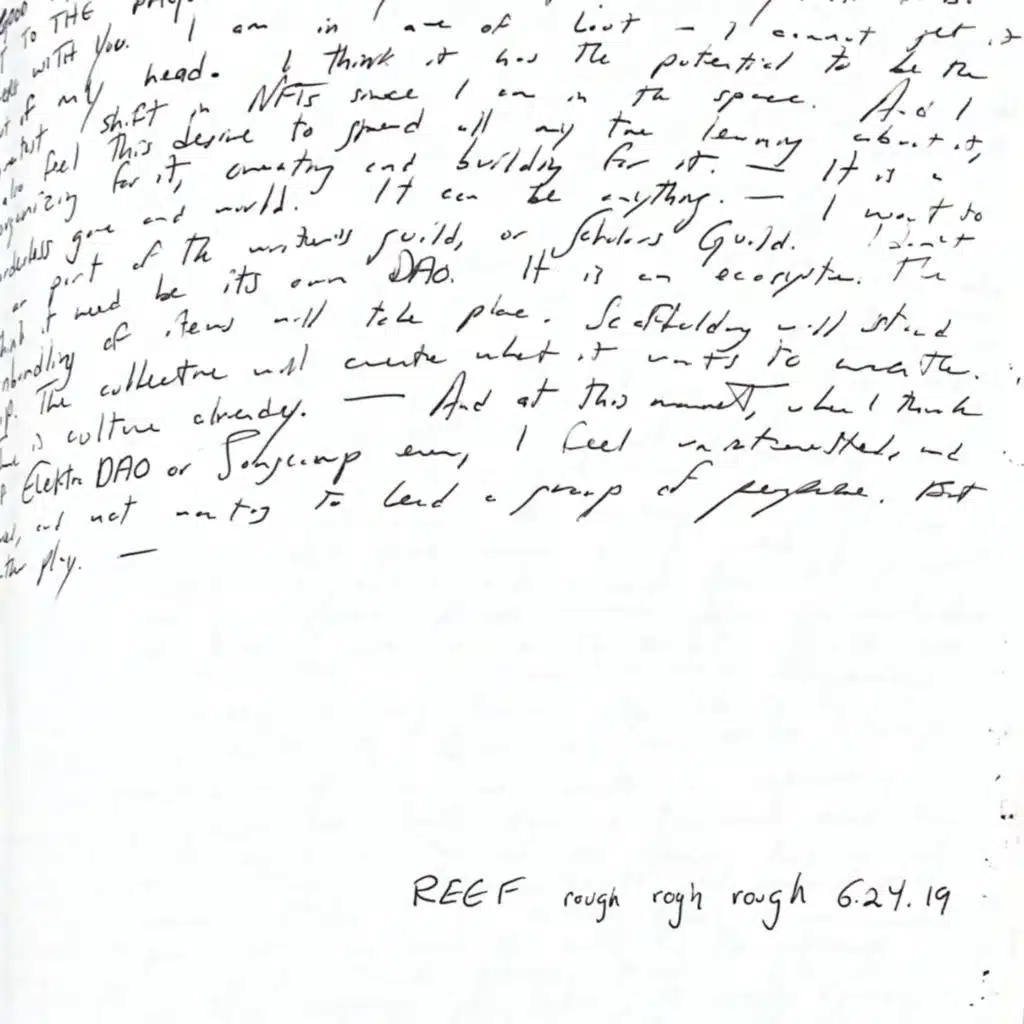 TO THE
with You. I am in awe of Loot – I cannot get it
of my head. I think it has the potential to be the
shift in NFTs since I am in the space. And I
feel this desire to spend all my time learning about it,
for it, creating and building for it. — It is a
game and world. It can be anything. — I want to
part of the writer's guild, or Scholars Guild. I don't
it need be its own DAO. It is an ecosystem. The
of items will take place. Scaffolding will stand
The collective will create what it wants to create.
is culture already. — And at this moment, when I think
Elektra DAO or Songcamp even, I feel and
and not wanting to lead a group of people. But
play. —
REEF rough rogh rough 6.24.19